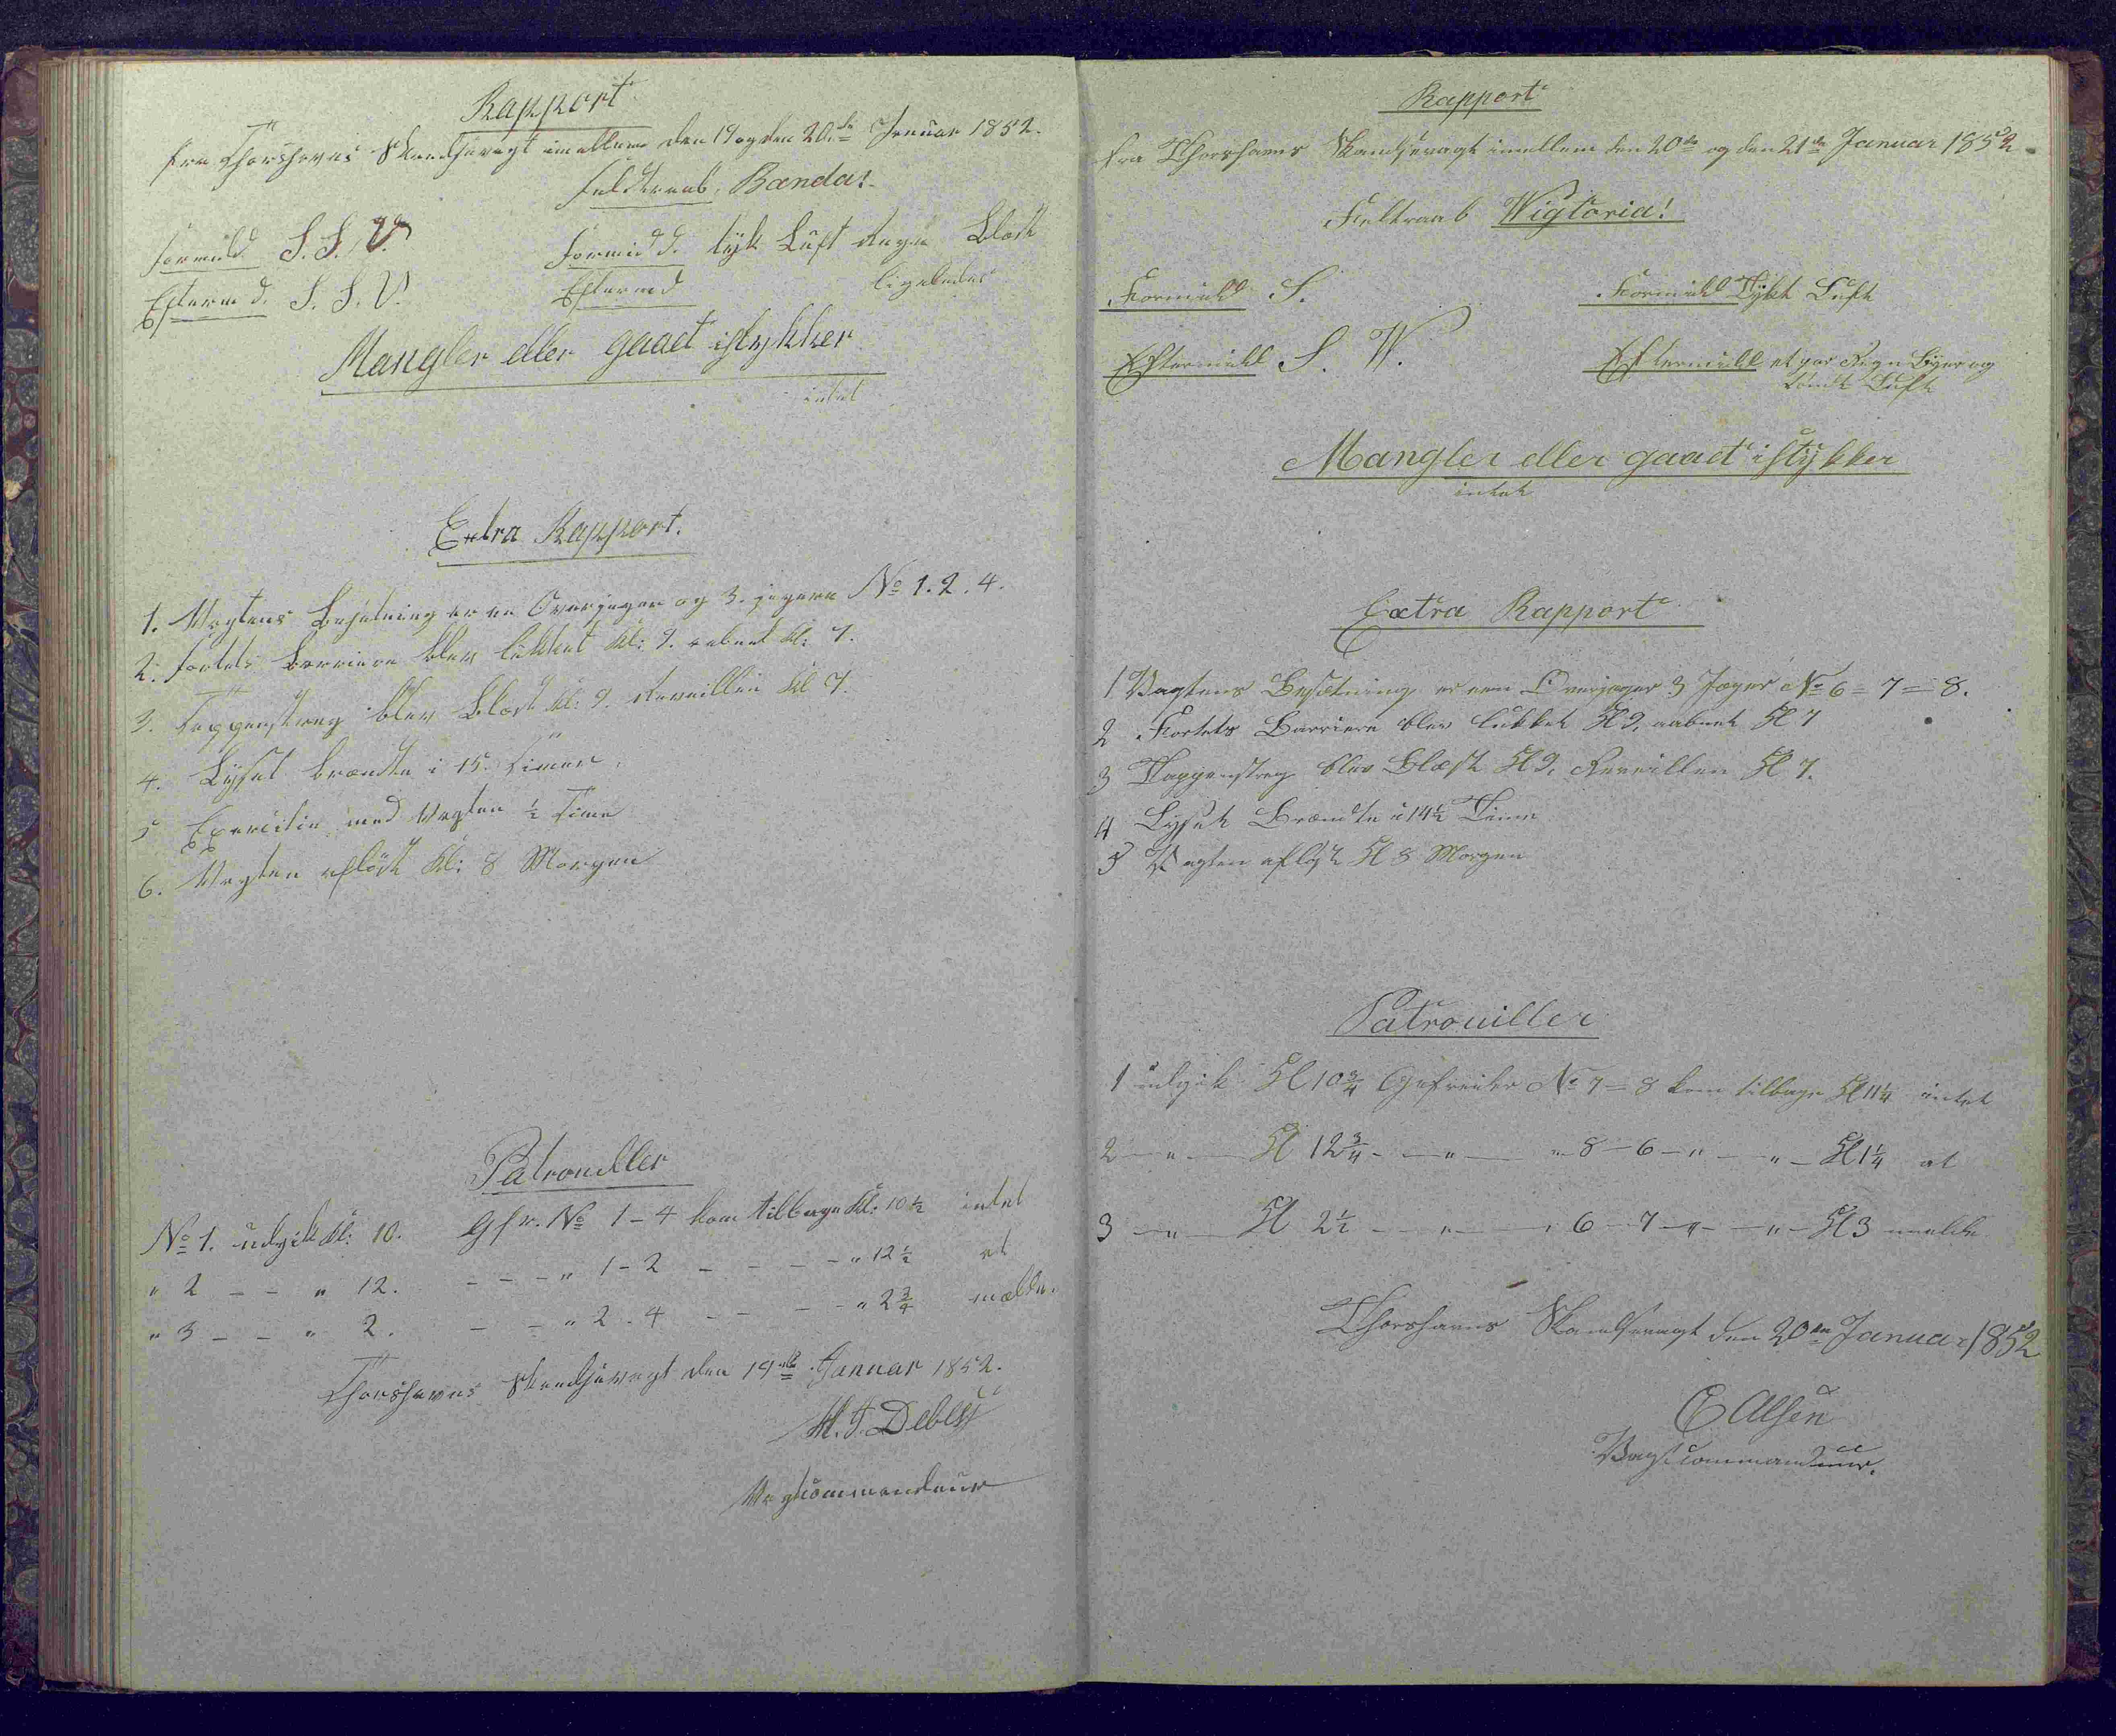 Rapport
fra Thorshavns Skandsevagt imellem den 19 og den 20de Januar 1852.
Feldtraab, Banda!
Formidd S. S. V. Formidd. tyk Luft Regn Blæst
Efterm d. S. S. V. Eftermd ligeledes
Mangler eller gaaet istykker
intet
Extra Rapport.
1. Vagtens Besætning er en Overjæger og 3. jægere No 1. 2. 4.
2. Fortets Barriere blev lukket Kl: 9. aabnet Kl: 7.
3. Tappenstreg blev Blæst Kl: 9. Reveillen Kl 7.
4. Lyset brændte i 15. Timer.
5 Exercitie med Vagten ½ Time
6. Vagten afløst Kl: 8 Morgen
Patrouiller
No 1. udgik Kl: 10. Gfr. No 1 - 4 kom tilbage Kl: 10½ intet
" 2 - - " 12. - - - " 1 - 2 - - - - " 12½ at
" 3 - - " 2. - - " 2 . 4 - - - - " 2¾ melde.
Thorshavns Skandsevagt den 19de Januar 1852.
M. J. Debess
Vagtcommandeur
Rapport
fra Thorshavns Skandsevagt imellem den 20de og den 21de Januar 1852
Feltraab Wigtoria!
Formidd S. Formidd Tykt Luft
Eftermidd S. W. Eftermidd et par Regn Byer og
Luft
Mangler eller gaaet istykker
intet
Extra Rapport
1 Vagtens Besætning er een Overjæger 3 Jæger No 6 = 7 = 8.
2 Fortets Barriere blev lukket Kl 9, aabnet Kl 7
3 Tappenstreg blev Blæst Kl 9, Reveillen Kl 7.
4 Lyset Brændte i 14½ Time
5 Vagten afløst Kl 8 Morgen
Patrouiller
1 udgik Kl 10¾ Gefreider No 7 = 8 kom tilbage Kl 11¼ intet
2 — " — Kl 12¾ - — " — " 8 - 6 - " — " — Kl 1¼ at
3 — " — Kl 2½ - — " — " 6 - 7 - " — " — Kl 3 melde
Thorshavns Skandsevagt den 20de Januar 1852
E Olsen
Vagtcommandeur.